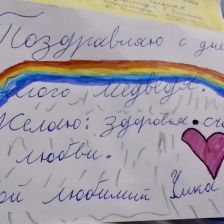 Поздравляю с днё
лого медведя.
Желаю: здоровья, сч
любви.
ой любимый Умка